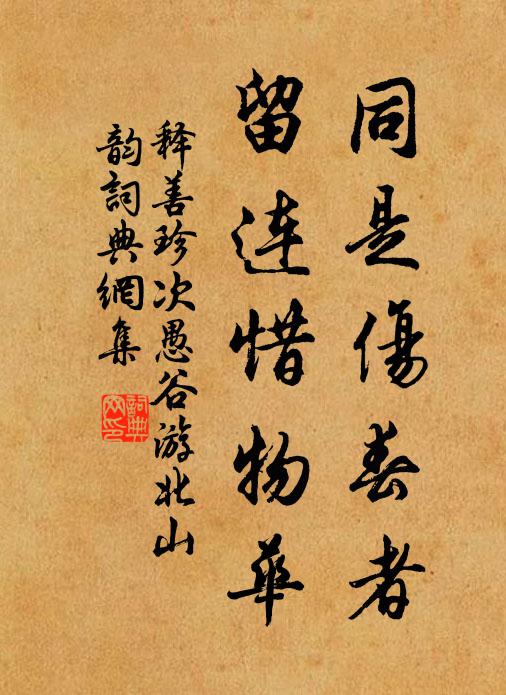 同是傷春者
留連惜物華
释善珍次愚谷游北山
韵詞典網集
詞典網印